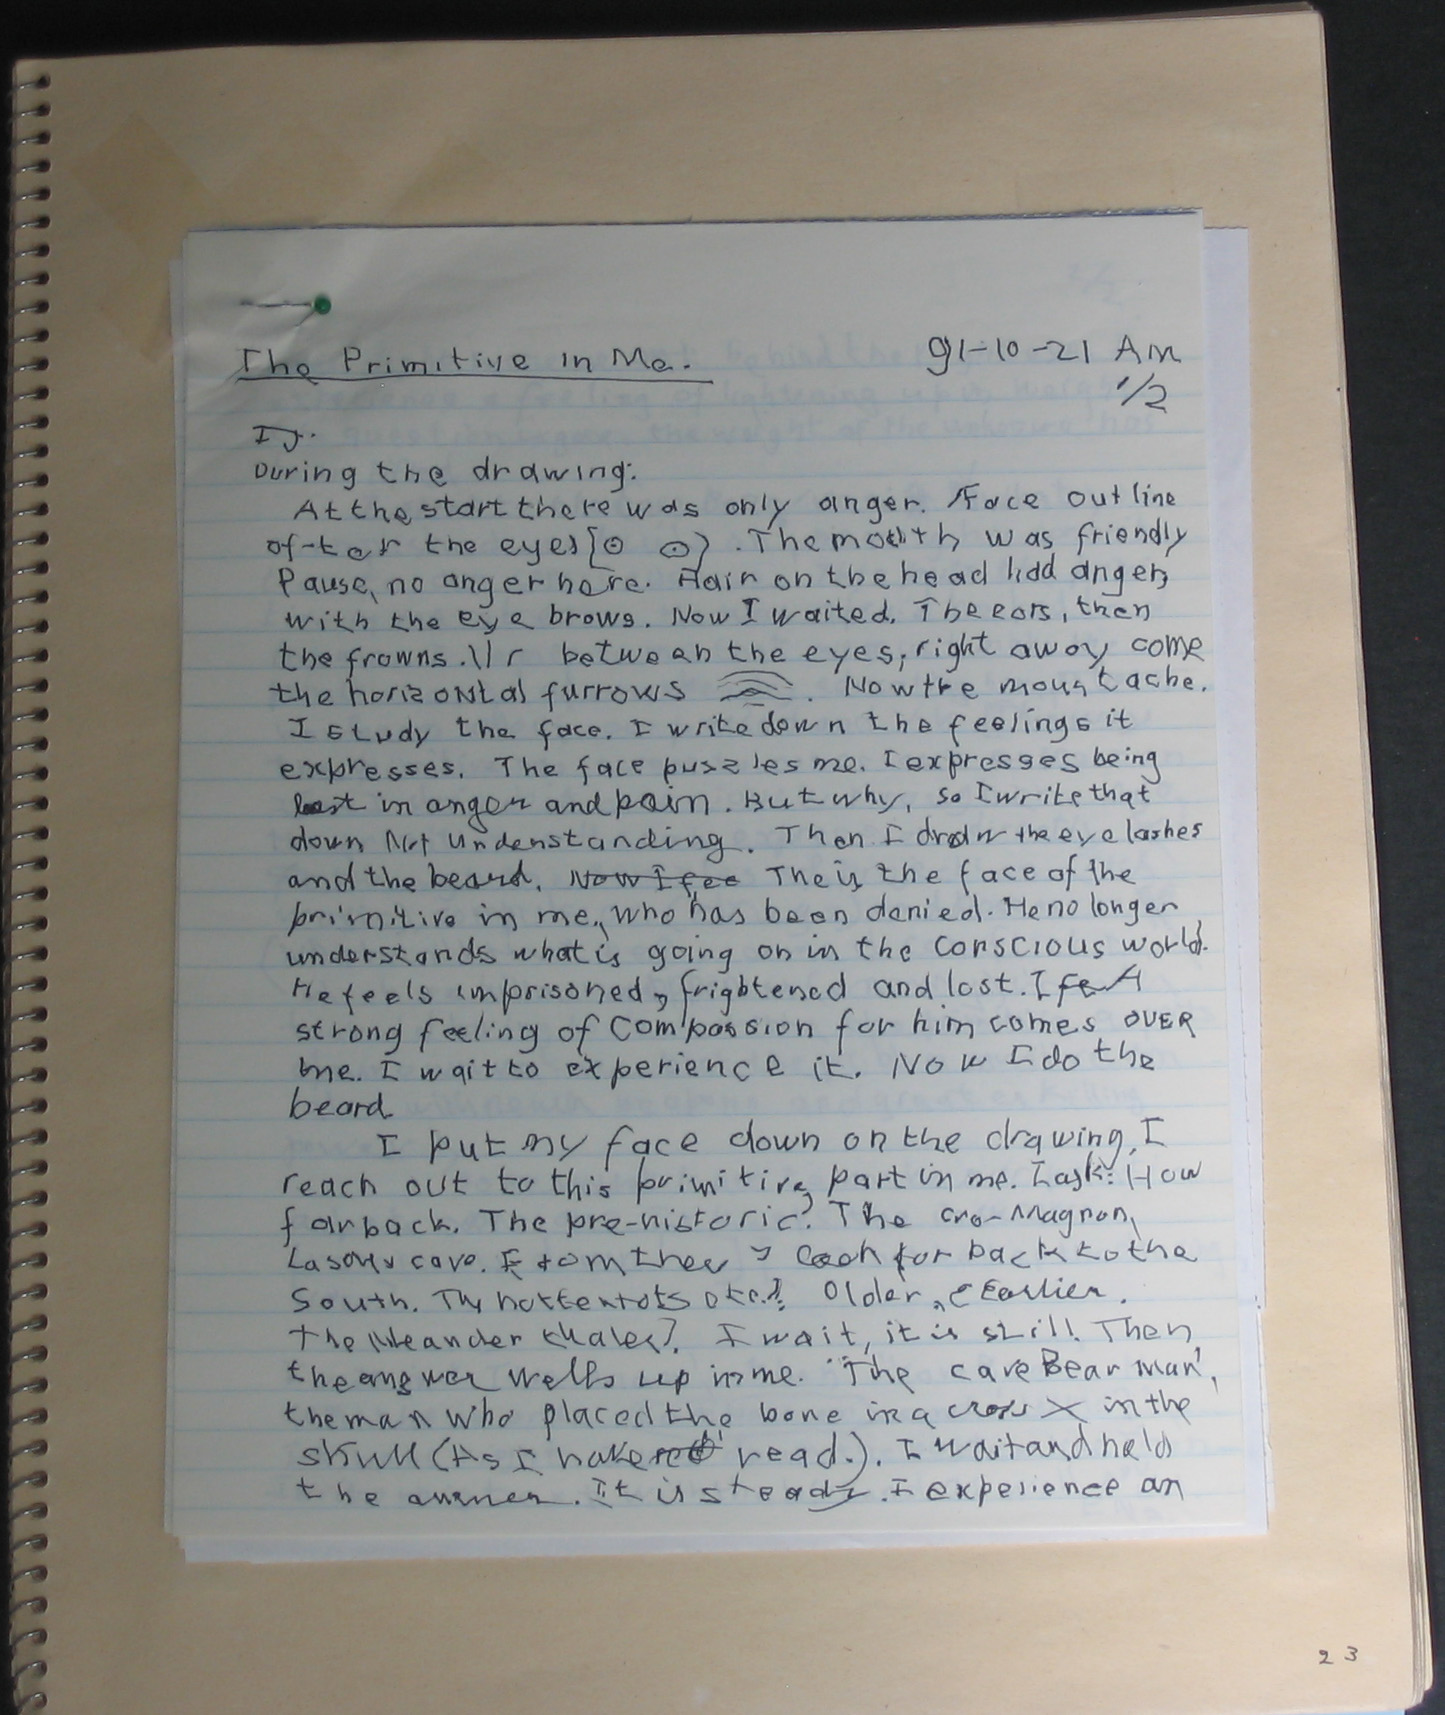 The Primitive in Me. 91-10-21 AM
1/2
IJ.
During the drawing:
At the start there was only anger. Face outline
after the eyes [⊙ ⊙]. The mouth was friendly
Pause, no anger here. Hair on the head had anger,
with the eye brows. Now I waited. The ears, then
the frowns. \\ r between the eyes, right away come
the horizontal furrows . Now the moustache.
I study the face. I write down the feelings it
expresses. The face puszles me. I expresses being
lost in anger and pain. But why, so I write that
down Not understanding. Then I draw the eye lashes
and the beard. Now I fee The is the face of the
primitive in me, who has been denied. He no longer
understands what is going on in the conscious world.
He feels imprisoned, frightened and lost. I fe A
strong feeling of compassion for him comes OVER
me. I wait to experience it. Now I do the
beard.
I put my face down on the drawing, I
reach out to this primitive part in me. I ask: How
far back. The pre-historic? The cro-Magnon,
cave. From there I look far back to the
South. The hottentots etc.? Older, Earlier.
The Neander thaler? I wait, it is still. Then
the answer wells up in me. "The cave Bear man",
the man who placed the bone in a cross X in the
skull (As I have read.). I wait and hold
the answer. It is steady. I experience an
23